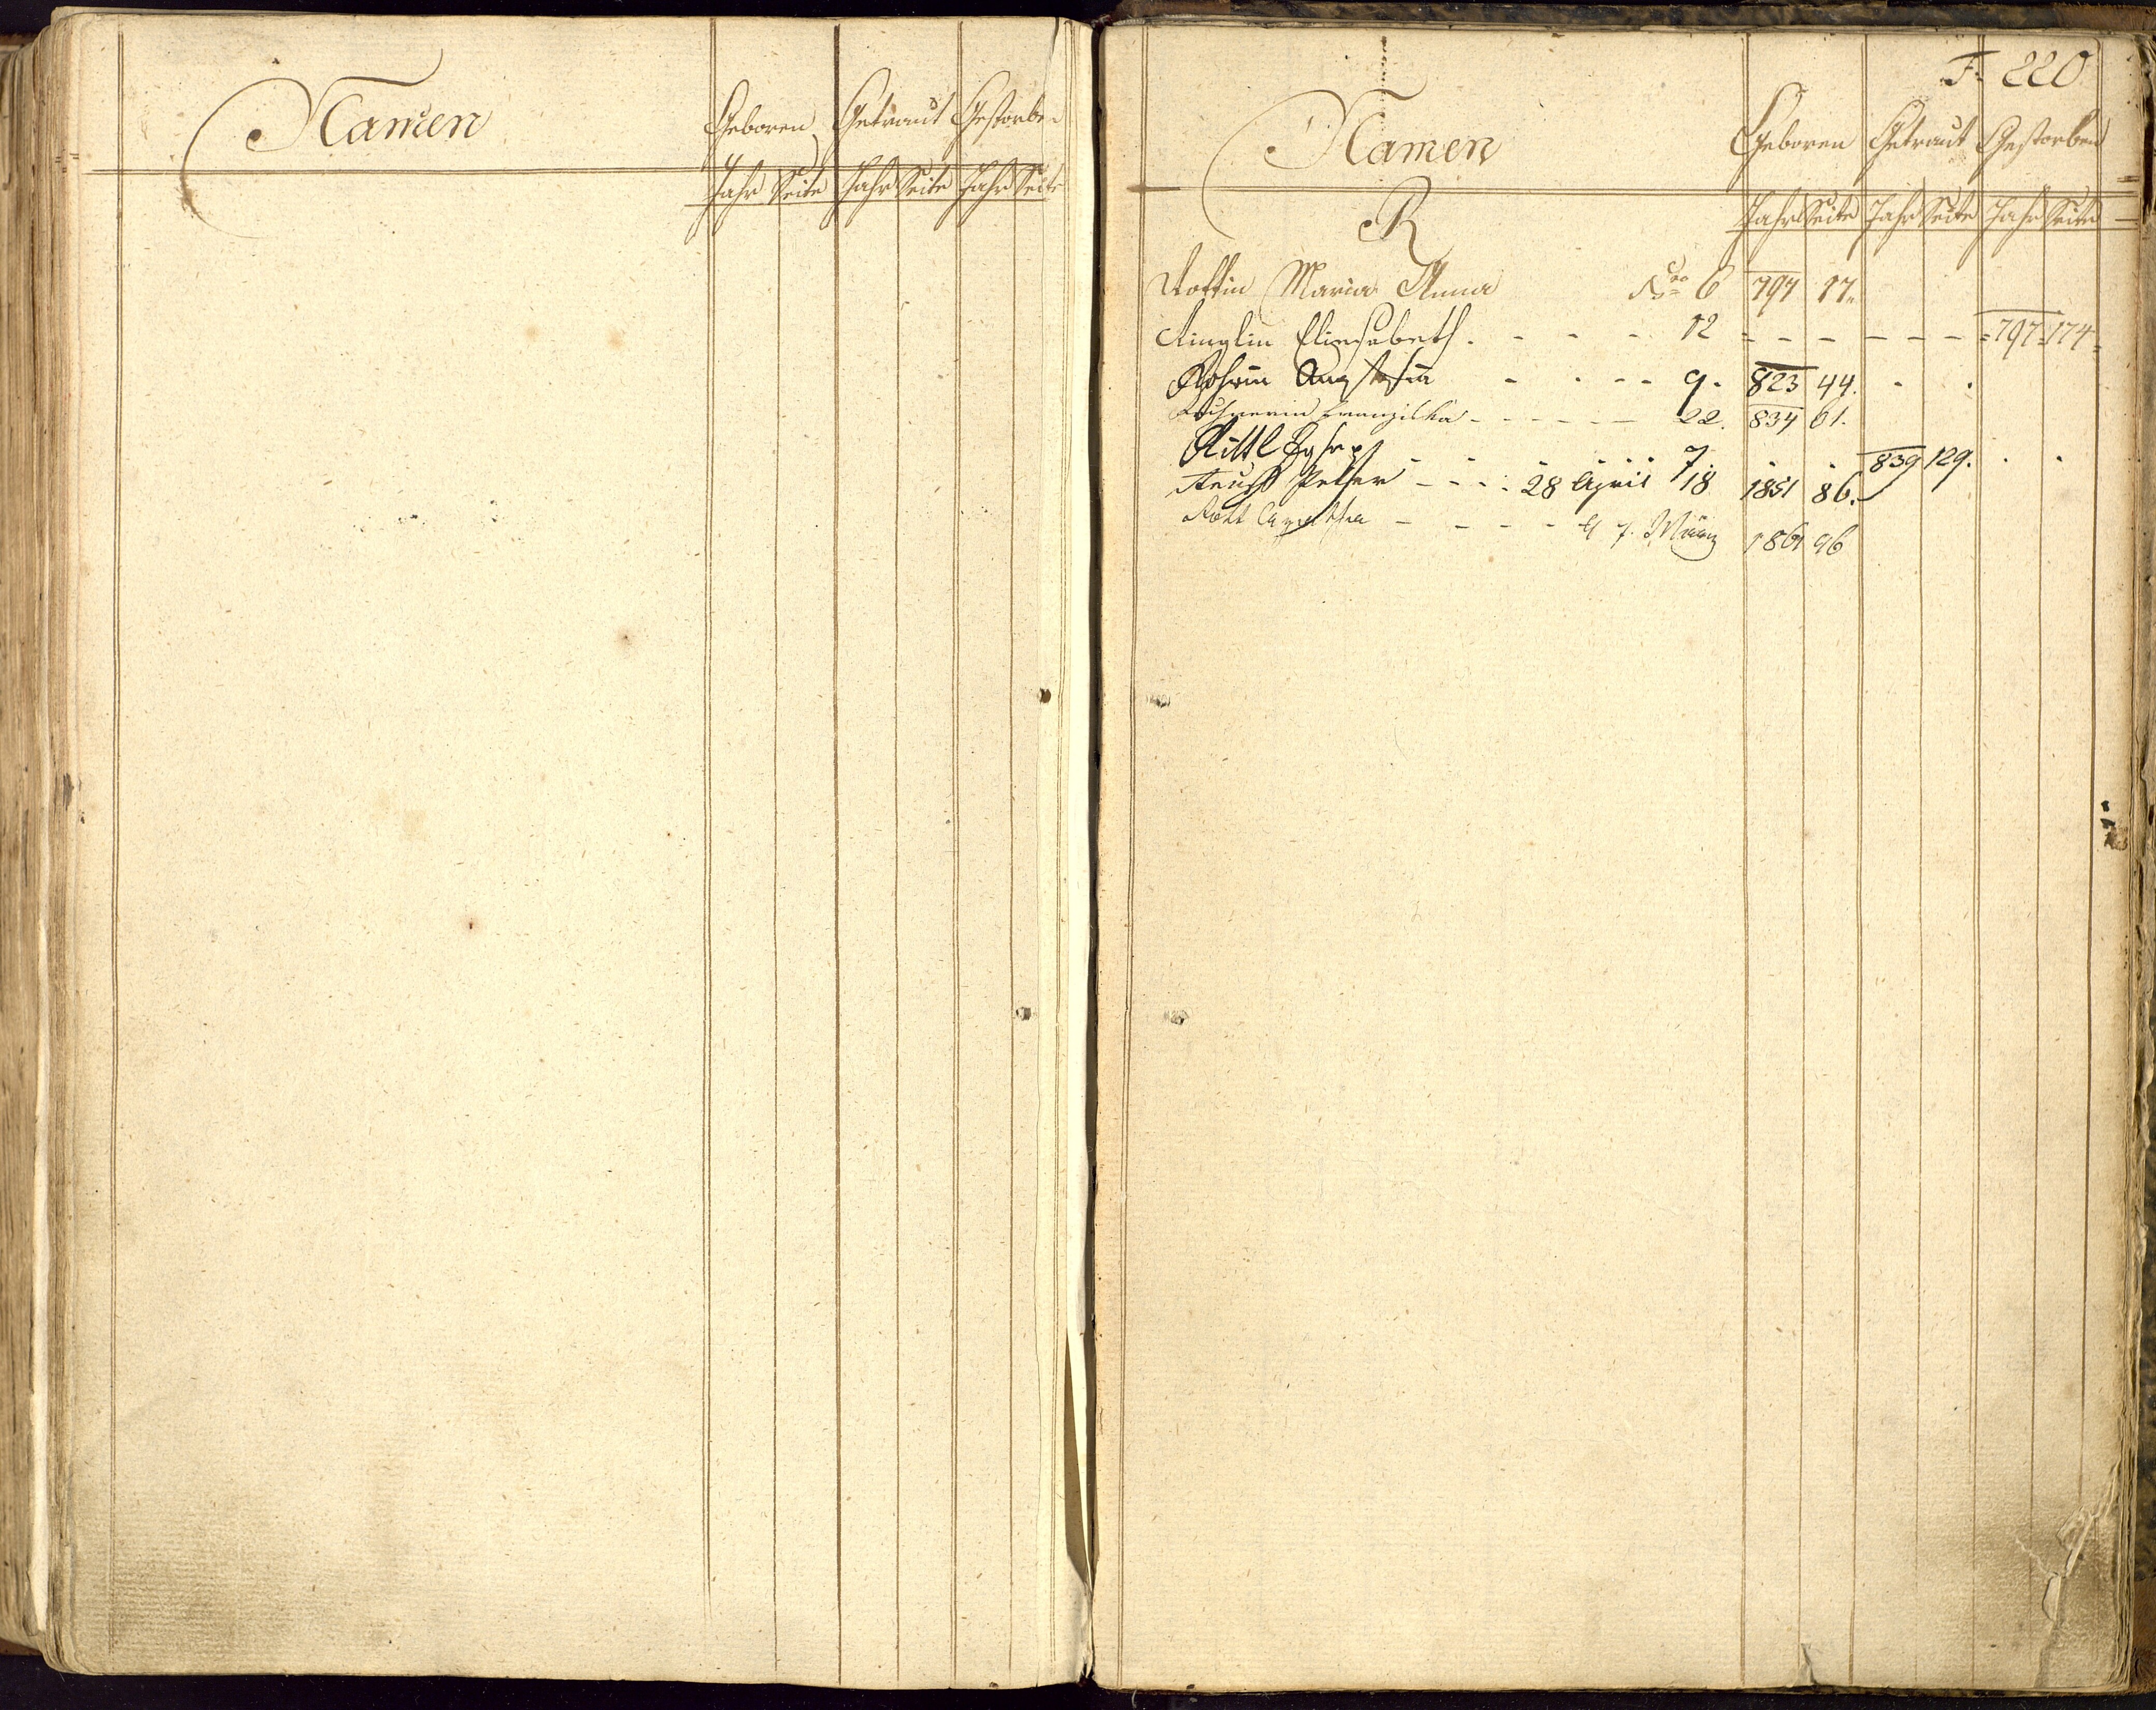 Namen Geboren Getraut Gestorben
Jahr Seite Jahr Seite Jahr Seite
F. 220
Namen Geboren Getraut Gestorben
Jahr Seite Jahr Seite Jahr Seite
R
Maria Anna Nro 6 797 17.
Ringlin Eliesabeth. - - - 12 - - - - - - - 797 174
- - - - 9. 823 44. - -
Franziska - - - - - - 22. 834 61.
Rittl Joseph - - - - - 7. - - 839 129. - -
Peter - - - - 28 April 18 1851 86.
Agatha - - - - 7. März 1861 96